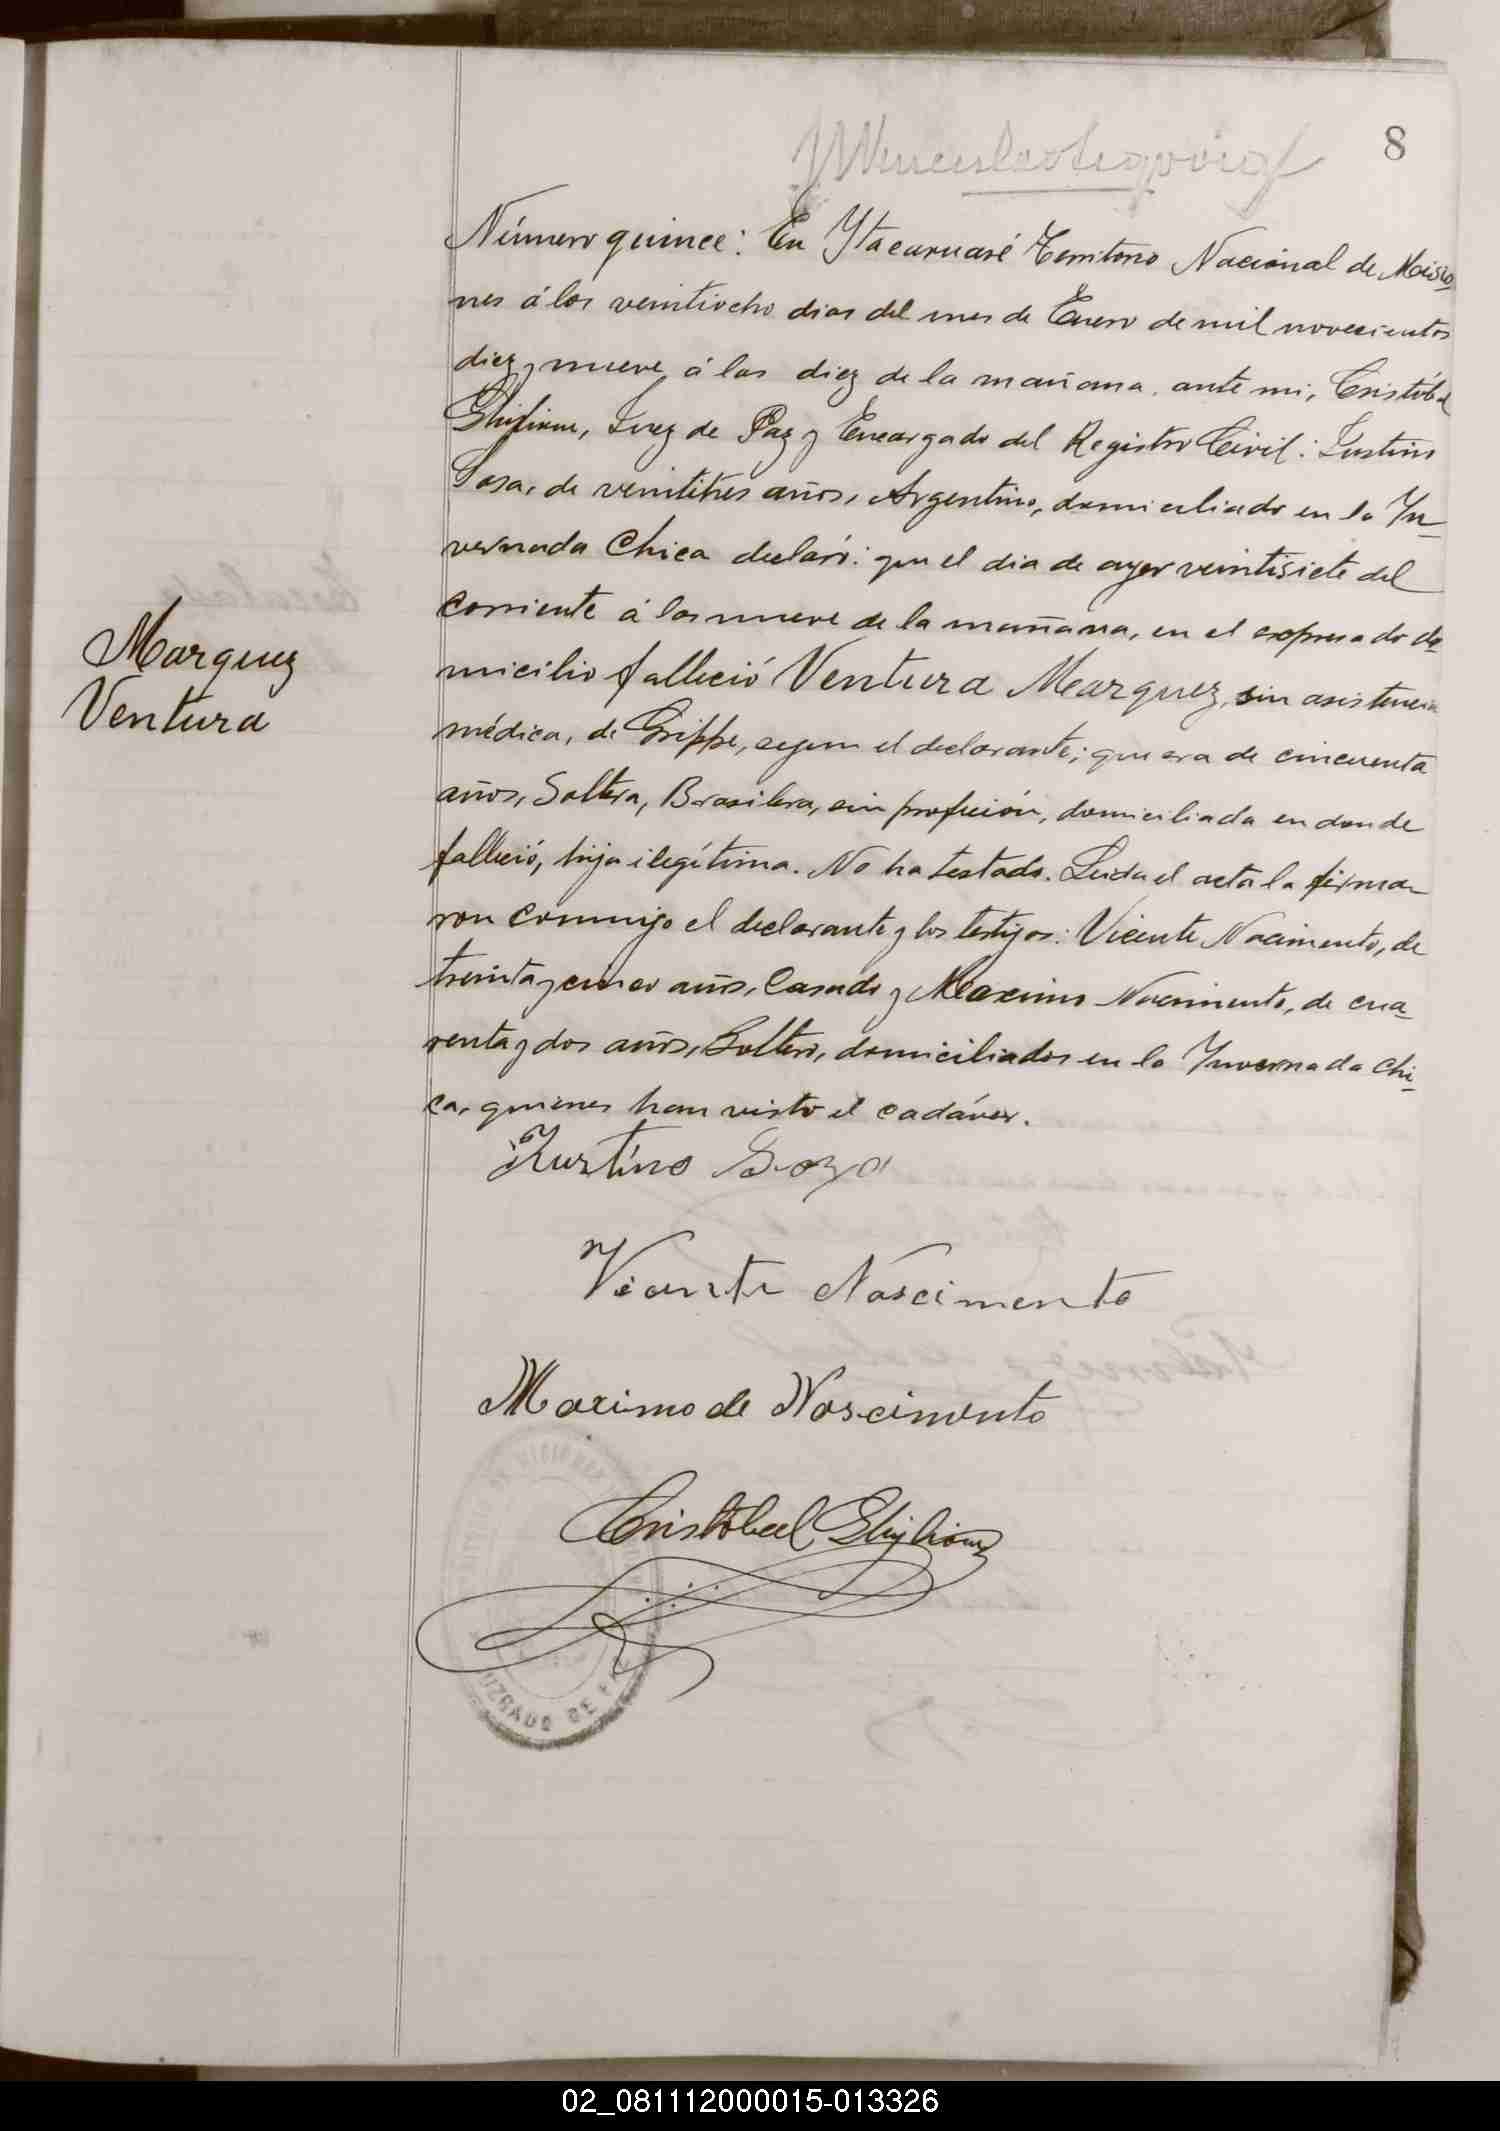 8
Número quince: En Ytacaruaré Territorio Nacional de Misio_
nes á los veintiocho dias del mes de Enero de mil novecientos
diez y nueve á las diez de la mañana, ante mi, Cristóbal
Ghiglione, Juez de Paz y Encargado del Registro Civil: Justino
Sosa, de veintitres años, Argentino, domiciliado en la In_
vernada Chica declaró: que el dia de ayer veintisiete del
corriente á las nueve de la mañana, en el expresado do_
micilio falleció Ventura Marquez, sin asistencia
médica, de Grippe, segun el declarante; que era de cincuenta
años, Soltera, Brasilera, sin profición, domiciliada en donde
falleció, hija ilegítima. No ha testado. Leida el acta la firma_
ron conmigo el declarante y los testigos: Vicente Nacimento, de
treinta y cinco años, Casado y Maximo Nacimento, de cua_
renta y dos años, Soltero, domiciliados en la Invernada Chi_
ca, quienes han visto el cadáver.
Marquez
Ventura
Justino Soza
Vicente Nascimento
Maximo de Noscimento
Cristóbal Ghiglione
JUZGADO DE PAZ
02_081112000015-013326